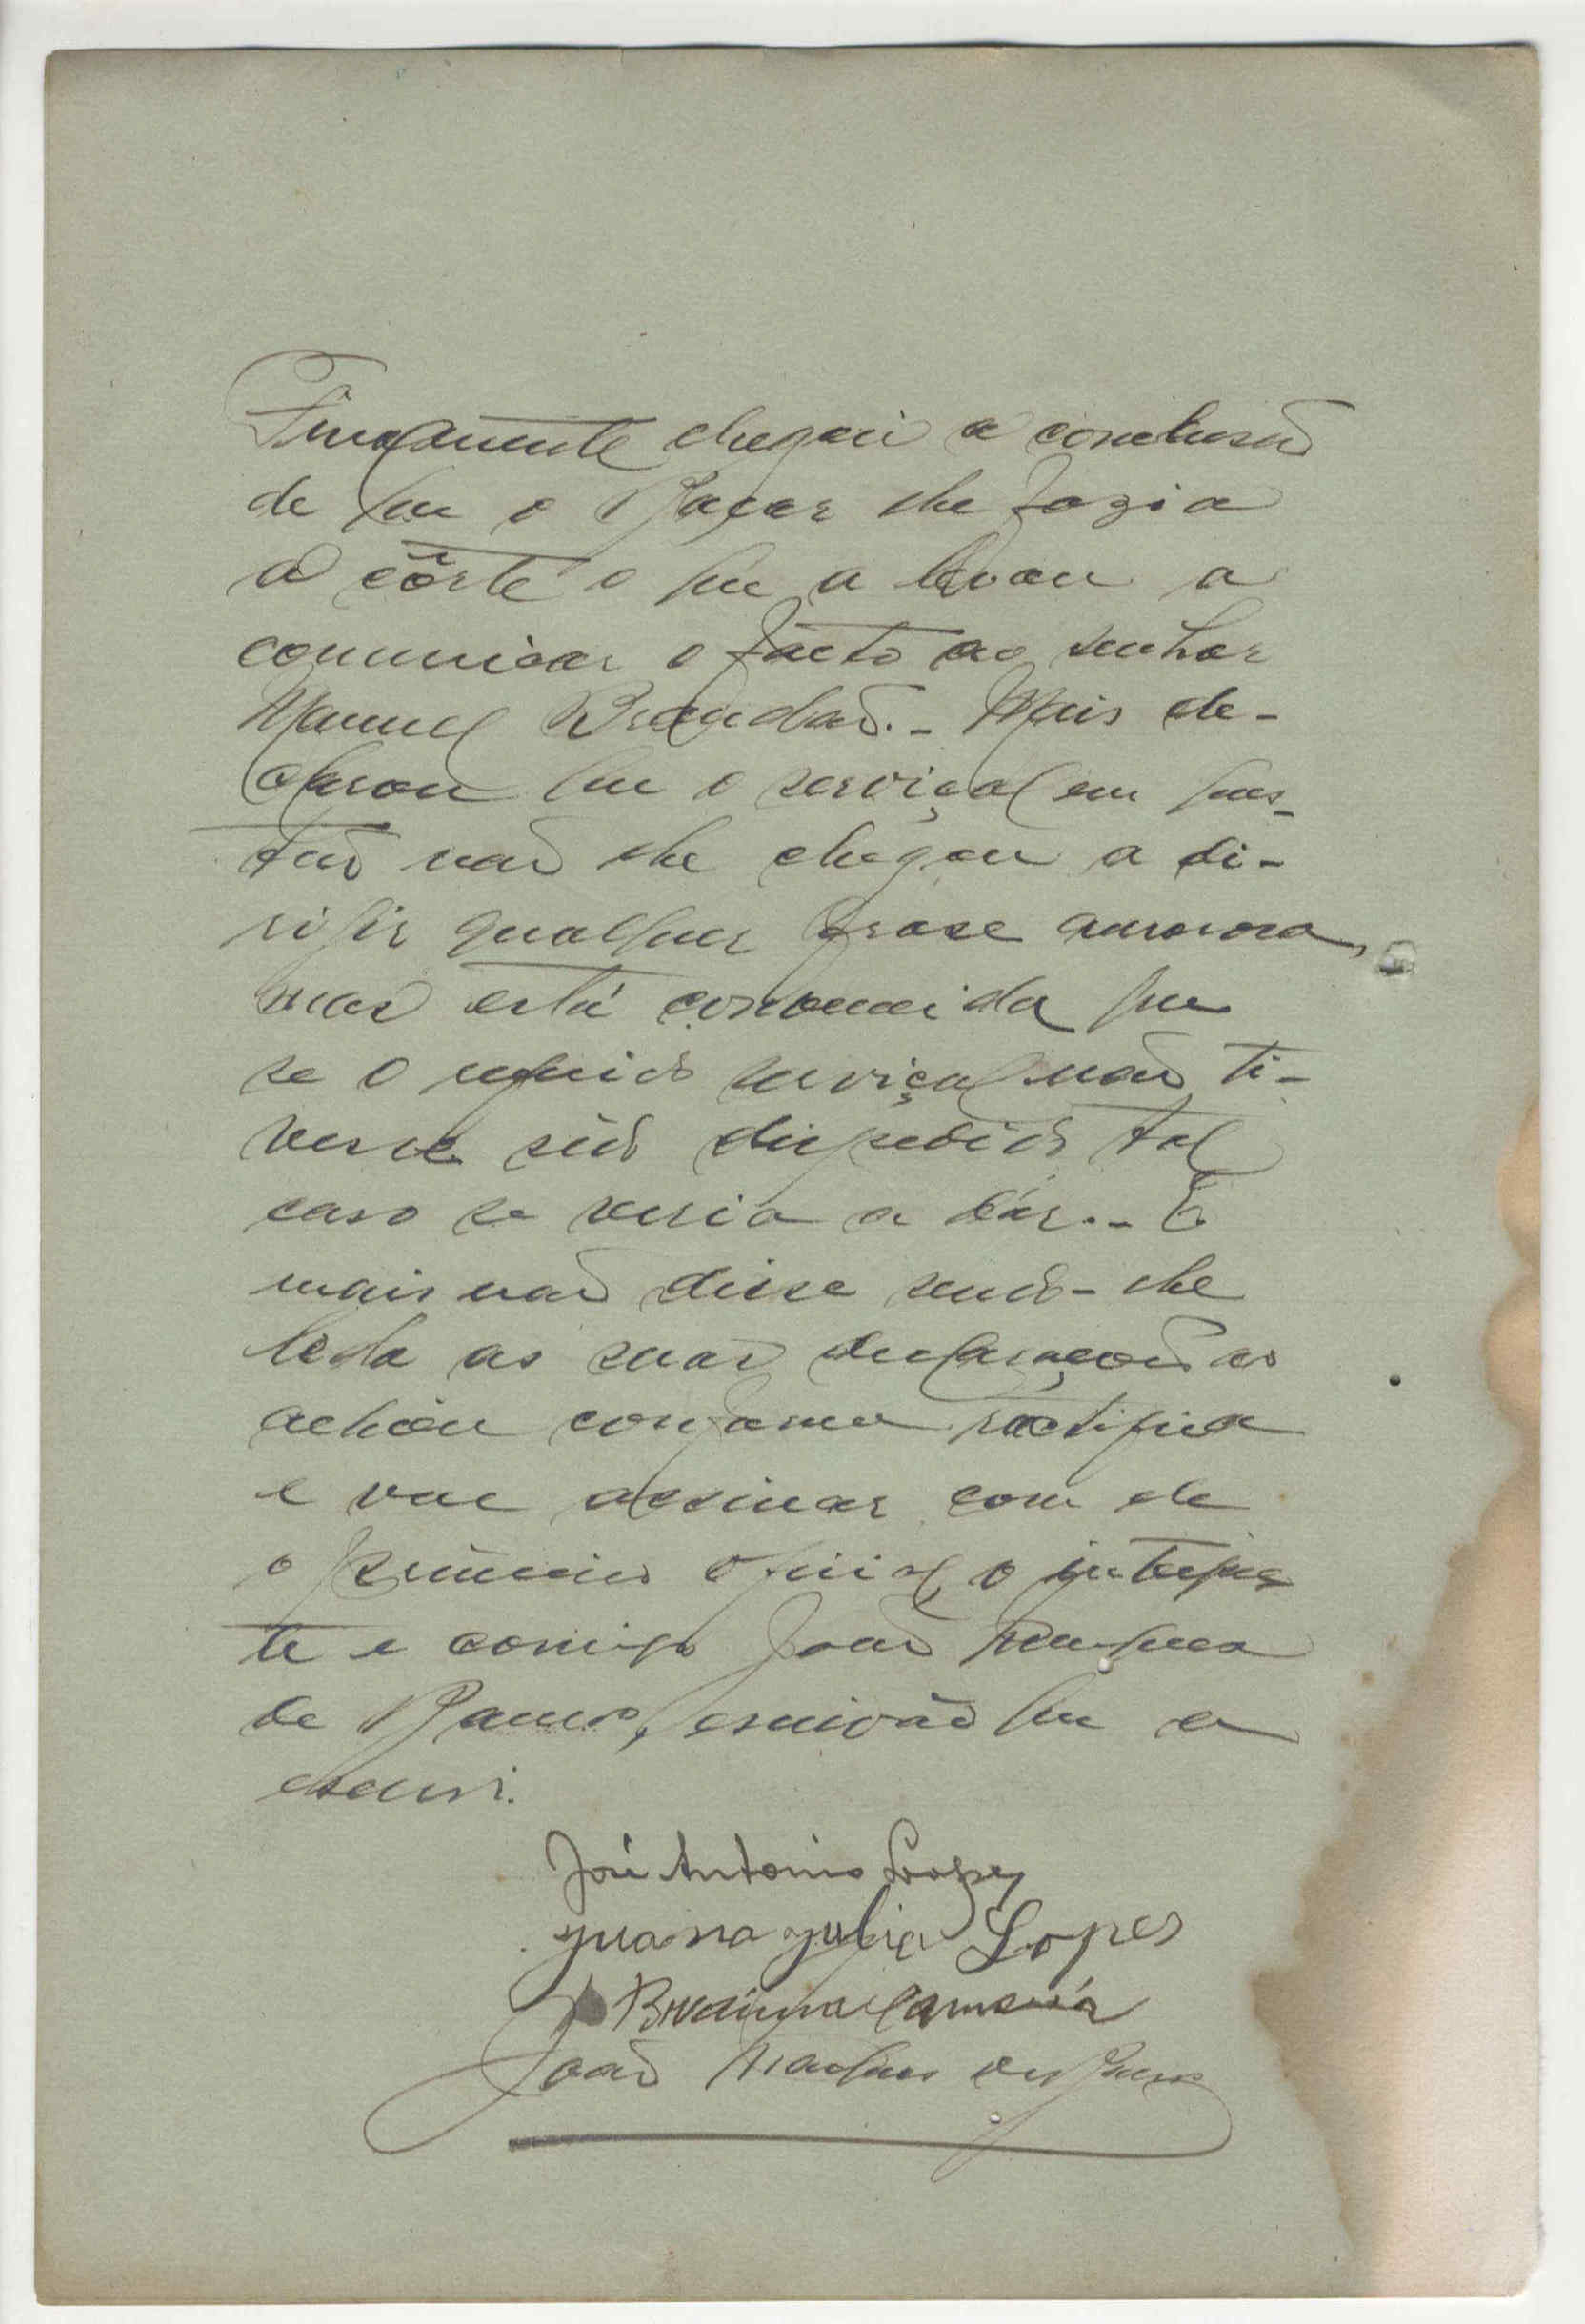 Finalmente chegou a conclusão
de que o Rapaz lhe fazia
a côrte o que a levou a
comunicar o facto ao senhor
Manuel Brandão. - Mais de-
clarou que o serviçal em ques-
tão não lhe chegou a di-
rigir qualquer frase amorosa,
mas está convencida que
se o referido serviçal não ti-
vesse sido despedido tal
caso se viria a dár. - E
mais não disse sendo-lhe
lida as suas declarações as
achou conforme ractifica
e vae assinar com ele
o primeiro oficial, o interpre
te e comigo João
de Ramos, escrivão que a
escrevi.
José Antonio Lopes
Juana Julia Lopes
João